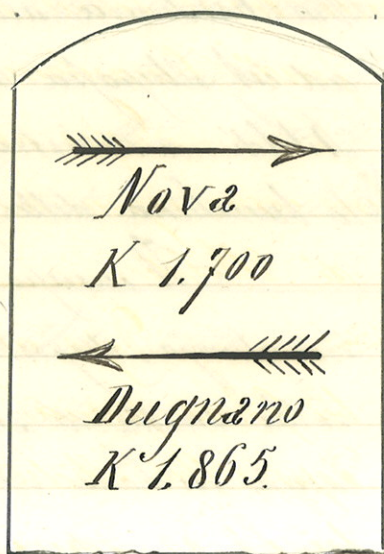 Nova
K 1.700
Dugnano
K 1.865.